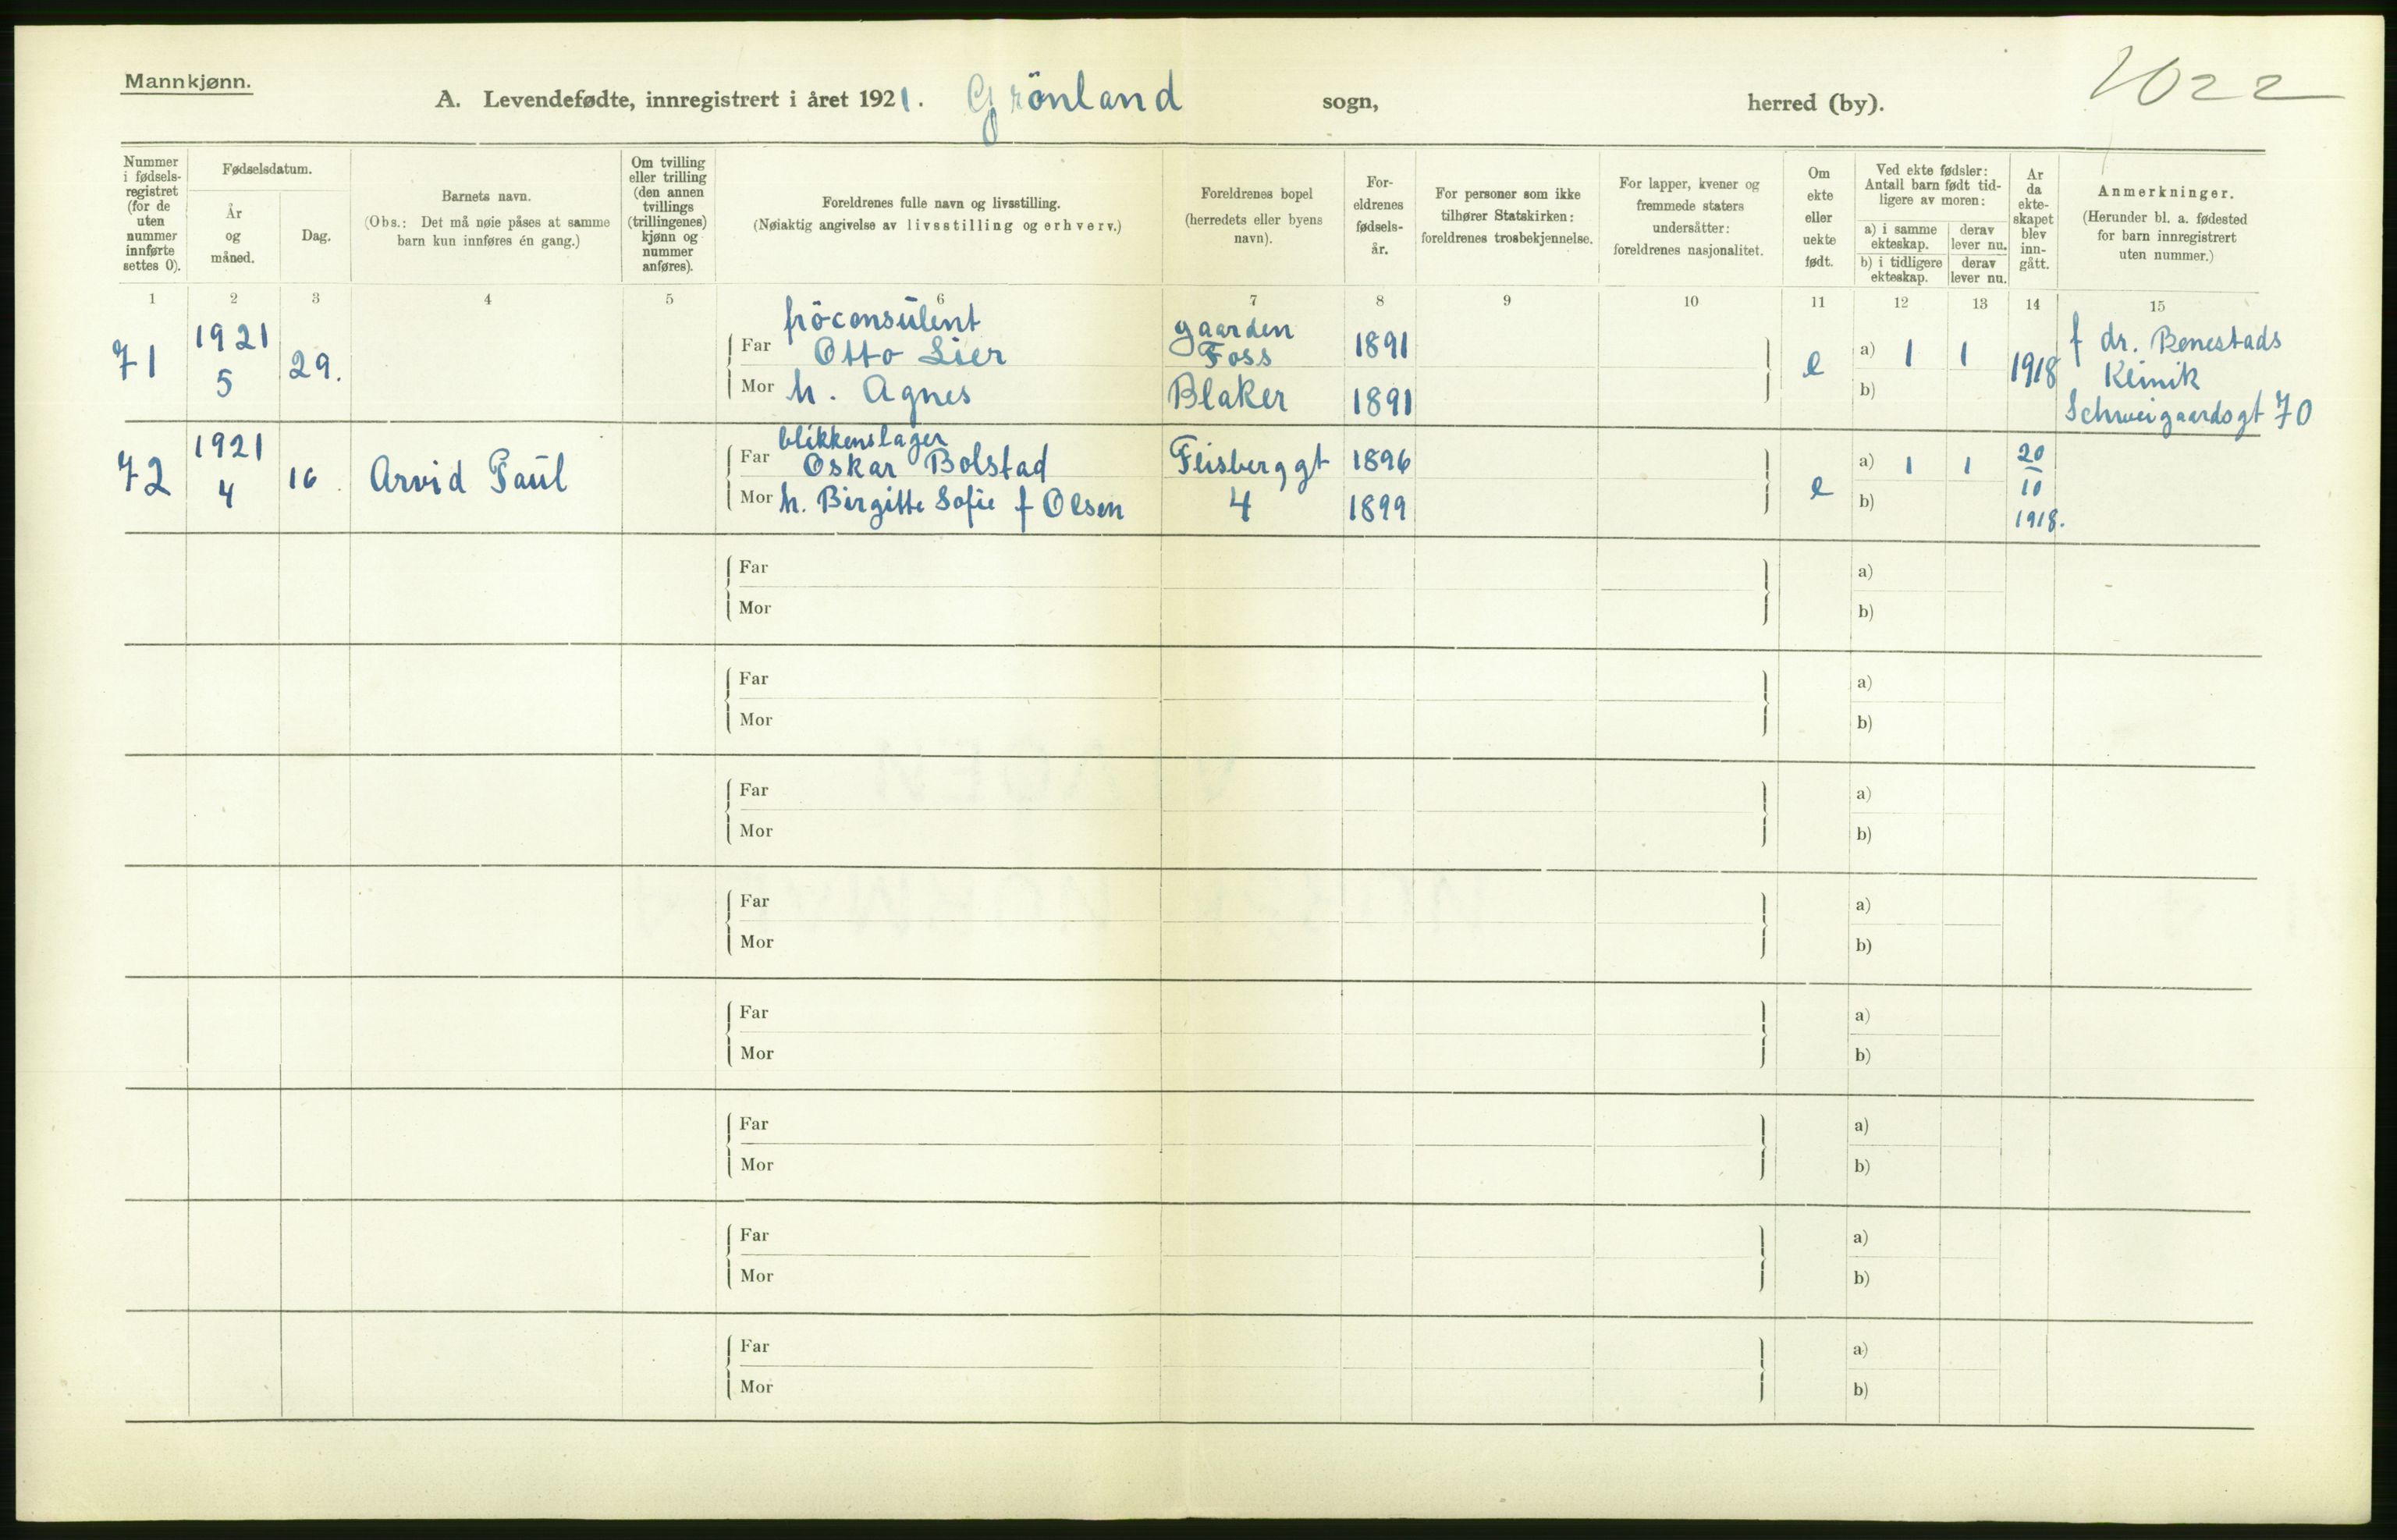 Mannkjønn.
A. Levendefødte, innregistrert i året 1921. Grönland sogn, herred (by).
2022
Nummer i fødsels-registret (for de uten nummer innførte settes 0).
Fødselsdatum.
År og måned.
Dag.
Barnets navn.
(Obs.: Det må nøie påses at samme barn kun innføres én gang.)
Om tvilling eller trilling (den annen tvillings (trillingenes) kjønn og nummer anføres).
Foreldrenes fulle navn og livsstilling.
(Nøiaktig angivelse av livsstilling og erhverv.)
Foreldrenes bopel (herredets eller byens navn).
For-eldrenes fødsels-år.
For personer som ikke tilhører Statskirken: foreldrenes trosbekjennelse.
For lapper, kvener og fremmede staters undersåtter: foreldrenes nasjonalitet.
Om ekte eller uekte født.
Ved ekte fødsler: Antall barn født tid-ligere av moren:
a) i samme ekteskap.
derav lever nu.
b) i tidligere ekteskap.
derav lever nu.
År da ekte-skapet blev inn-gått.
Anmerkninger.
(Herunder bl. a. fødested for barn innregistrert uten nummer.)
1 2 3 4 5 6 7 8 9 10 11 12 13 14 15
71 1921 5 29.
fröconsulent
Far Otto Lier
Mor h. Agnes
gaarden
Foss
Blaker
1891
1891
e
a) 1 1
b)
1918
f dr. Benestads
Klinik
Schweigaardsgt 70
72 1921 4 16. Arvid Paul
blikkenslager
Far Oskar Bolstad
Mor h. Birgitte Sofie f Olsen
Fleisberggt
4
1896
1899
e
a) 1 1
b)
20
10
1918.
Far a)
Mor b)
Far a)
Mor b)
Far a)
Mor b)
Far a)
Mor b)
Far a)
Mor b)
Far a)
Mor b)
Far a)
Mor b)
Far a)
Mor b)